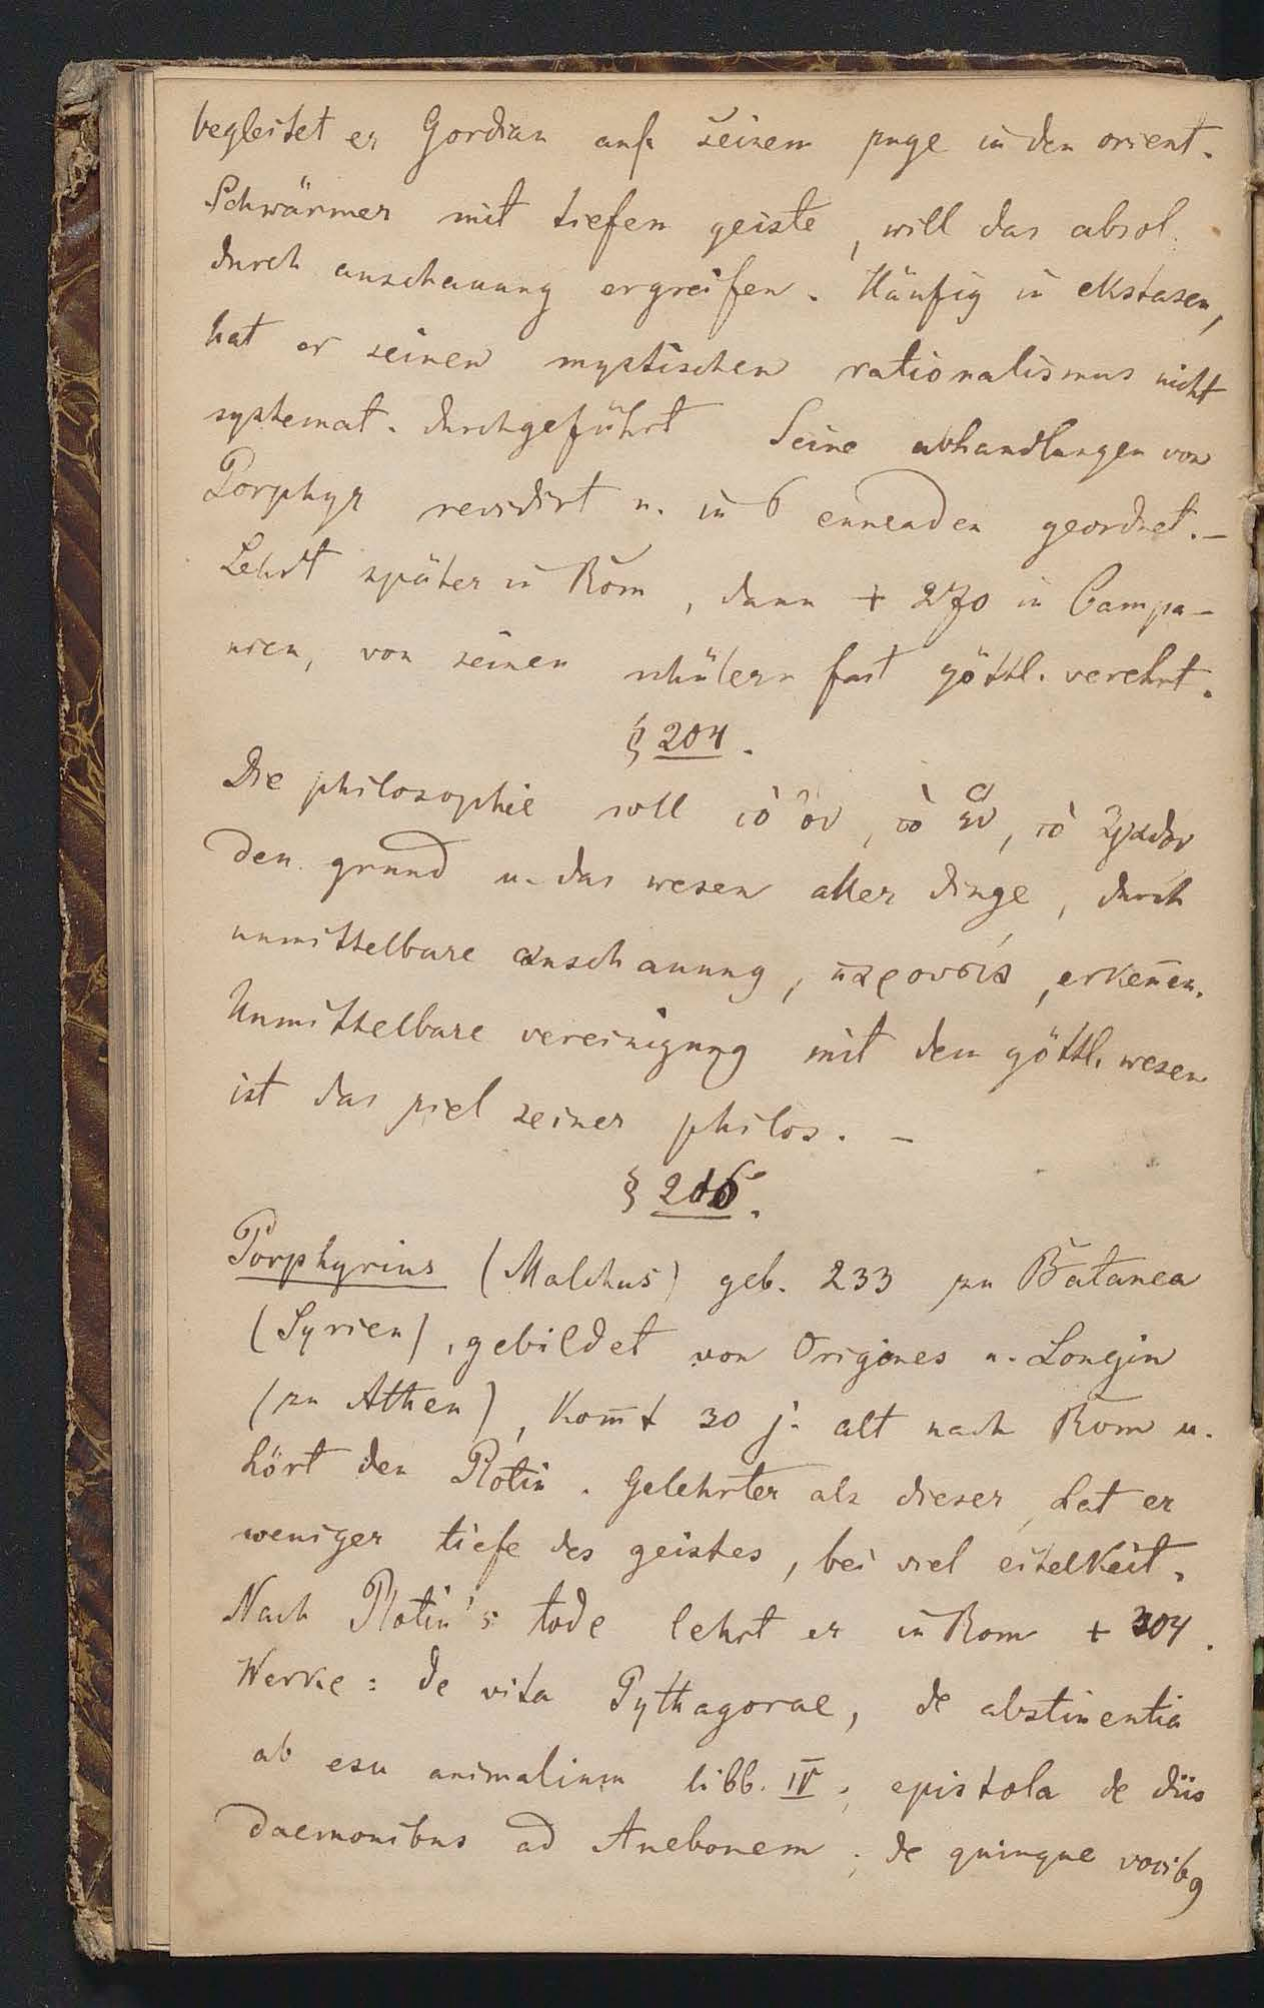 begleitet er Gordian auf seinem zuge in den orient.
Schwärmer mit tiefem geiste, will das absol.
durch anschauung ergreifen. Häufig in ekstasen,
hat er seinen mystischen rationalismus nicht
systemat. durchgeführt Seine abhandlungen von
Porphyr revidirt u. in 6 enneaden geordnet. –
Lehrt später in Rom, dann + 270 in Campa-
nien, von seinen schülern fast göttl. verehrt.
§ 204.
Die philosophie soll τὸ ὄν, τὸ ἕν, τὸ ἀγαθόν
den grund u. das wesen aller dinge, durch
unmittelbare anschauung, παρουσία, erkeñen.
Unmittelbare vereinigung mit dem göttl. wesen
ist das ziel seiner philos. –
§ 205.
Porphyrius (Malchus) geb. 233 zu Batanea
(Syrien), gebildet von Origines u. Longin
(zu Athen), kom̄t 30 j. alt nach Rom u.
hört den Plotin. Gelehrter als dieser, hat er
weniger tiefe des geistes, bei viel eitelkeit.
Nach Plotin's tode lehrt er in Rom + 304.
Werke: de vita Pythagorae, de abstinentia
ab esu animalium libb. IV; epistola de diis
daemonibus ad Anebonem; de quinque vocib9